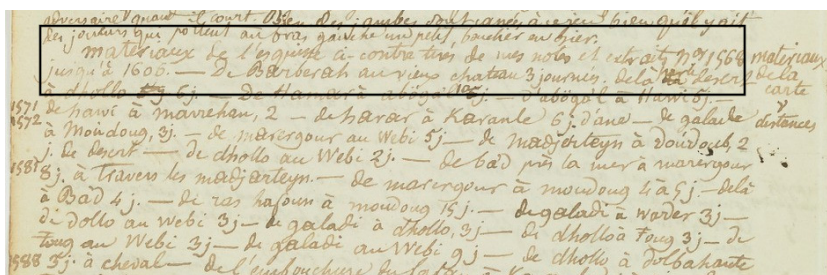 adversaire quand il court. bien des
des joueurs qui portent au bras gauche un petit bouclier
materiaux de l'esquisse ci-contre tirés de mes notes et extraits nos 1568 materiaux
jusqu'à 1600. — De Barberah au vieux chateau 3 journées. de là desert de la
à dhollo 6j. — De Hamar à 15j. — d'abogal à Hawi 5j. — carte
1571 de hawi à marrehan, 2 — de harar à Karanle 6j. d'ane — de galade distances
1572 à Moudoug, 3j. — de marergour au Webi 5j — de madjerteyn à doudoub, 2
j. de desert — de dhollo au Webi 2j. — de bad près la mer à marergour
1581 8j. à travers les madjerteyn. — de marergour à moudoug 4 à 5j — de là
à Bad 4j. — de ras hafoun à moudoug 15j. — de galadi à warder 3j —
de dollo au webi 3j — de galadi à dhollo, 3j — de dhollo à Foug 3j — de
Foug au Webi 3j — de galadi au Webi 9j — de dhollo à dolbahante
1588 3j. à cheval — de l'embouchure